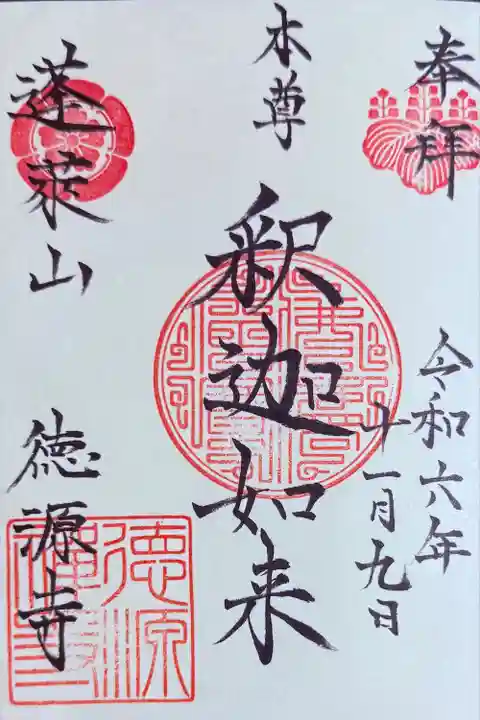 奉拝
令和六年
十一月九日
本尊
釈迦如来
蓬莱山
徳源寺